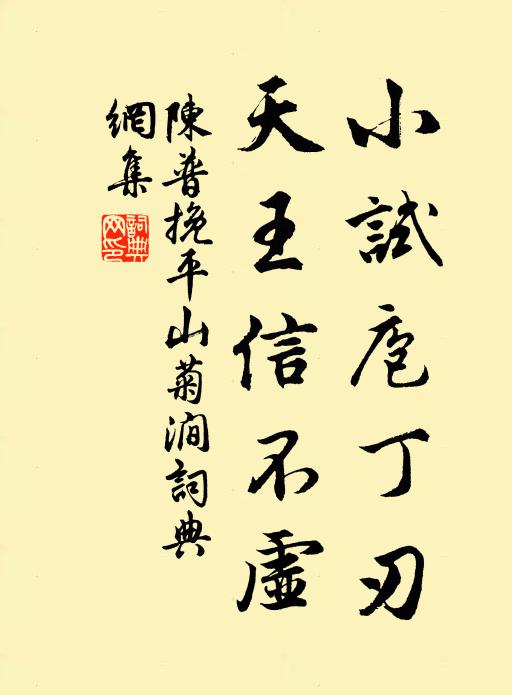 小試庖丁刃
天王信不虛
陳普挽平山菊澗詞典
網集
詞典網印